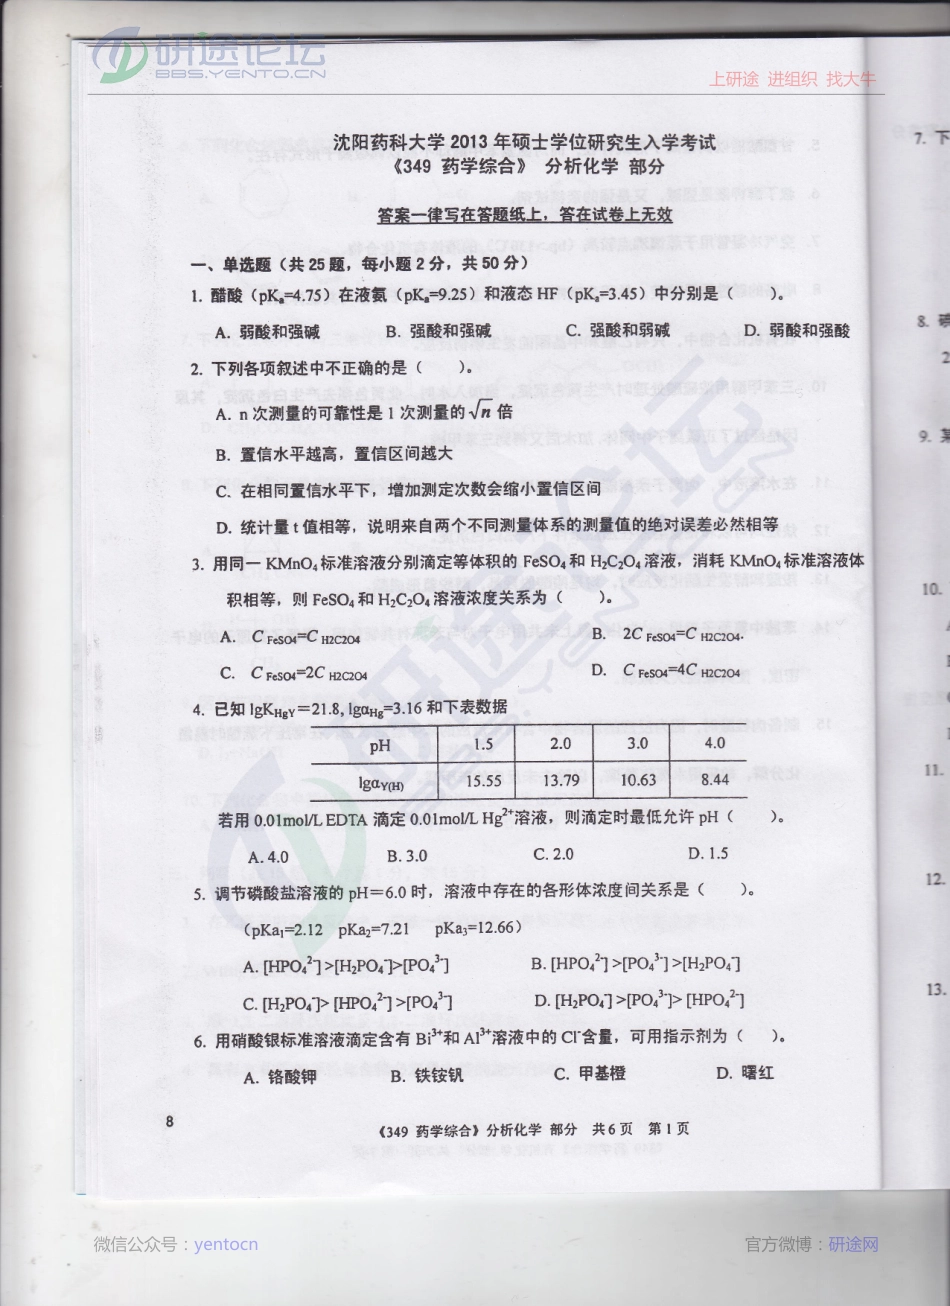 研途论坛
BBS.YENTO.CN
上研途 进组织 找大牛
沈阳药科大学 2013 年硕士学位研究生入学考试
《349 药学综合》 分析化学 部分
答案一律写在答题纸上，答在试卷上无效
一、单选题（共 25 题，每小题 2 分，共 50 分）
1. 醋酸（pKₐ=4.75）在液氨（pKₐ=9.25）和液态 HF（pKₐ=3.45）中分别是（ ）。
A. 弱酸和强碱 B. 强酸和强碱 C. 强酸和弱碱 D. 弱酸和强酸
2. 下列各项叙述中不正确的是（ ）。
A. n 次测量的可靠性是 1 次测量的 √n 倍
B. 置信水平越高，置信区间越大
C. 在相同置信水平下，增加测定次数会缩小置信区间
D. 统计量 t 值相等，说明来自两个不同测量体系的测量值的绝对误差必然相等
3. 用同一 KMnO₄ 标准溶液分别滴定等体积的 FeSO₄ 和 H₂C₂O₄ 溶液，消耗 KMnO₄ 标准溶液体
积相等，则 FeSO₄ 和 H₂C₂O₄ 溶液浓度关系为（ ）。
A. C FeSO4=C H2C2O4 B. 2C FeSO4=C H2C2O4.
C. C FeSO4=2C H2C2O4 D. C FeSO4=4C H2C2O4
4. 已知 lgK_HgY＝21.8, lgα_Hg=3.16 和下表数据
pH 1.5 2.0 3.0 4.0
lgα_Y(H) 15.55 13.79 10.63 8.44
若用 0.01mol/L EDTA 滴定 0.01mol/L Hg²⁺溶液，则滴定时最低允许 pH（ ）。
A. 4.0 B. 3.0 C. 2.0 D. 1.5
5. 调节磷酸盐溶液的 pH＝6.0 时，溶液中存在的各形体浓度间关系是（ ）。
（pKa₁=2.12 pKa₂=7.21 pKa₃=12.66）
A. [HPO₄²⁻] >[H₂PO₄⁻]>[PO₄³⁻] B. [HPO₄²⁻] >[PO₄³⁻] >[H₂PO₄⁻]
C. [H₂PO₄⁻]> [HPO₄²⁻] >[PO₄³⁻] D. [H₂PO₄⁻] >[PO₄³⁻]> [HPO₄²⁻]
6. 用硝酸银标准溶液滴定含有 Bi³⁺和 Al³⁺溶液中的 Cl⁻含量，可用指示剂为（ ）。
A. 铬酸钾 B. 铁铵钒 C. 甲基橙 D. 曙红
8
《349 药学综合》分析化学 部分 共 6 页 第 1 页
微信公众号：yentocn
官方微博：研途网
7. 下
8.
2
9. 某
10.
11.
12.
13.